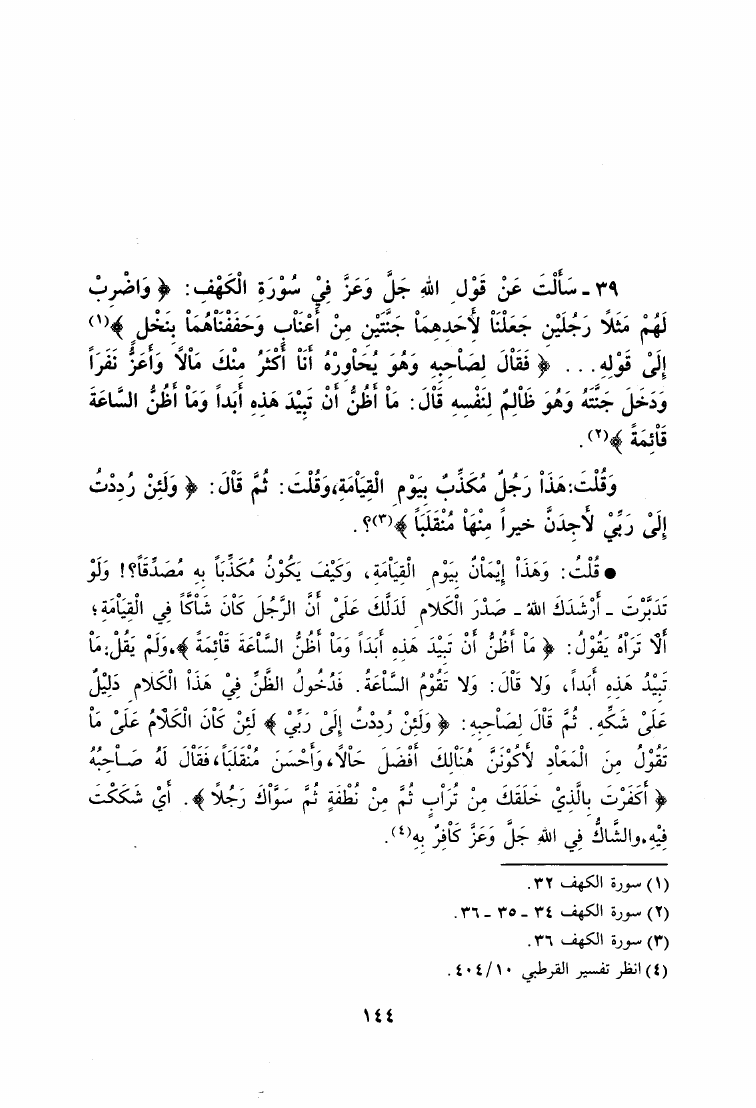 ٣٩ ـ سَأَلْتَ عَنْ قَوْلِ اللهِ جَلَّ وَعَزَّ فِيْ سُوْرَةِ الْكَهْفِ: ﴿ وَاضْرِبْ
لَهُمْ مَثَلاً رَجُلَيْنِ جَعَلْنَاْ لأَحَدِهِمَاْ جَنَّتَيْنِ مِنْ أَعْنَاْبٍ وَحَفَفْنَاْهُمَاْ بِنَخْلٍ ﴾(١)
إِلَىْ قَوْلِهِ ... ﴿ فَقَاْلَ لِصَاْحِبِهِ وَهُوَ يُحَاْوِرُهُ أَنَاْ أَكْثَرُ مِنْكَ مَاْلاً وَأَعَزُّ نَفَرَاً
وَدَخَلَ جَنَّتَهُ وَهُوَ ظَاْلِمٌ لِنَفْسِهِ قَاْلَ: مَاْ أَظُنُّ أَنْ تَبِيْدَ هَذِهِ أَبَداً وَمَاْ أَظُنُّ السَّاْعَةَ
قَاْئِمَةً ﴾(٢).
وَقُلْتَ: هَذَاْ رَجُلٌ مُكَذِّبٌ بِيَوْمِ الْقِيَاْمَةِ، وَقُلْتَ: ثُمَّ قَاْلَ: ﴿ وَلَئِنْ رُدِدْتُ
إِلَىْ رَبِّيْ لأَجِدَنَّ خَيراً مِنْهَاْ مُنْقَلَبَاً ﴾(٣)؟.
● قُلْتُ: وَهَذَاْ إِيْمَاْنٌ بِيَوْمِ الْقِيَاْمَةِ، وَكَيْفَ يَكُوْنُ مُكَذِّبَاً بِهِ مُصَدِّقَاً؟! وَلَوْ
تَدَبَّرْتَ ـ أَرْشَدَكَ اللهُ ـ صَدْرَ الْكَلَاْمِ لَدَلَّكَ عَلَىْ أَنَّ الرَّجُلَ كَاْنَ شَاْكَّاً فِي الْقِيَاْمَةِ؛
أَلاْ تَرَاْهُ يَقُوْلُ: ﴿ مَاْ أَظُنُّ أَنْ تَبِيْدَ هَذِهِ أَبَدَاً وَمَاْ أَظُنُّ السَّاْعَةَ قَاْئِمَةً ﴾، وَلَمْ يَقُلْ: مَاْ
تَبِيْدُ هَذِهِ أَبَداً، وَلاْ قَاْلَ: وَلاْ تَقُوْمُ السَّاْعَةُ. فَدُخُوْلُ الظَّنِّ فِيْ هَذَاْ الْكَلاْمِ دَلِيْلٌ
عَلَىْ شَكِّهِ. ثُمَّ قَاْلَ لِصَاْحِبِهِ: ﴿ وَلَئِنْ رُدِدْتُ إِلَىْ رَبِّيْ ﴾ لَئِنْ كَاْنَ الْكَلاْمُ عَلَىْ مَاْ
تَقُوْلُ مِنَ الْمَعَاْدِ لأَكُوْنَنَّ هُنَاْلِكَ أَفْضَلَ حَاْلاً، وَأَحْسَنَ مُنْقَلَبَاً، فَقَاْلَ لَهُ صَاْحِبُهُ
﴿ أَكَفَرْتَ بِالَّذِيْ خَلَقَكَ مِنْ تُرَاْبٍ ثُمَّ مِنْ نُطْفَةٍ ثُمَّ سَوَّاْكَ رَجُلاً ﴾. أَيْ شَكَكْتَ
فِيْهِ، والشَّاْكُّ فِي اللهِ جَلَّ وَعَزَّ كَاْفِرٌ بِهِ(٤).
(١) سورة الكهف ٣٢.
(٢) سورة الكهف ٣٤ ـ ٣٥ ـ ٣٦.
(٣) سورة الكهف ٣٦.
(٤) انظر تفسير القرطبي ١٠/٤٠٤.
١٤٤